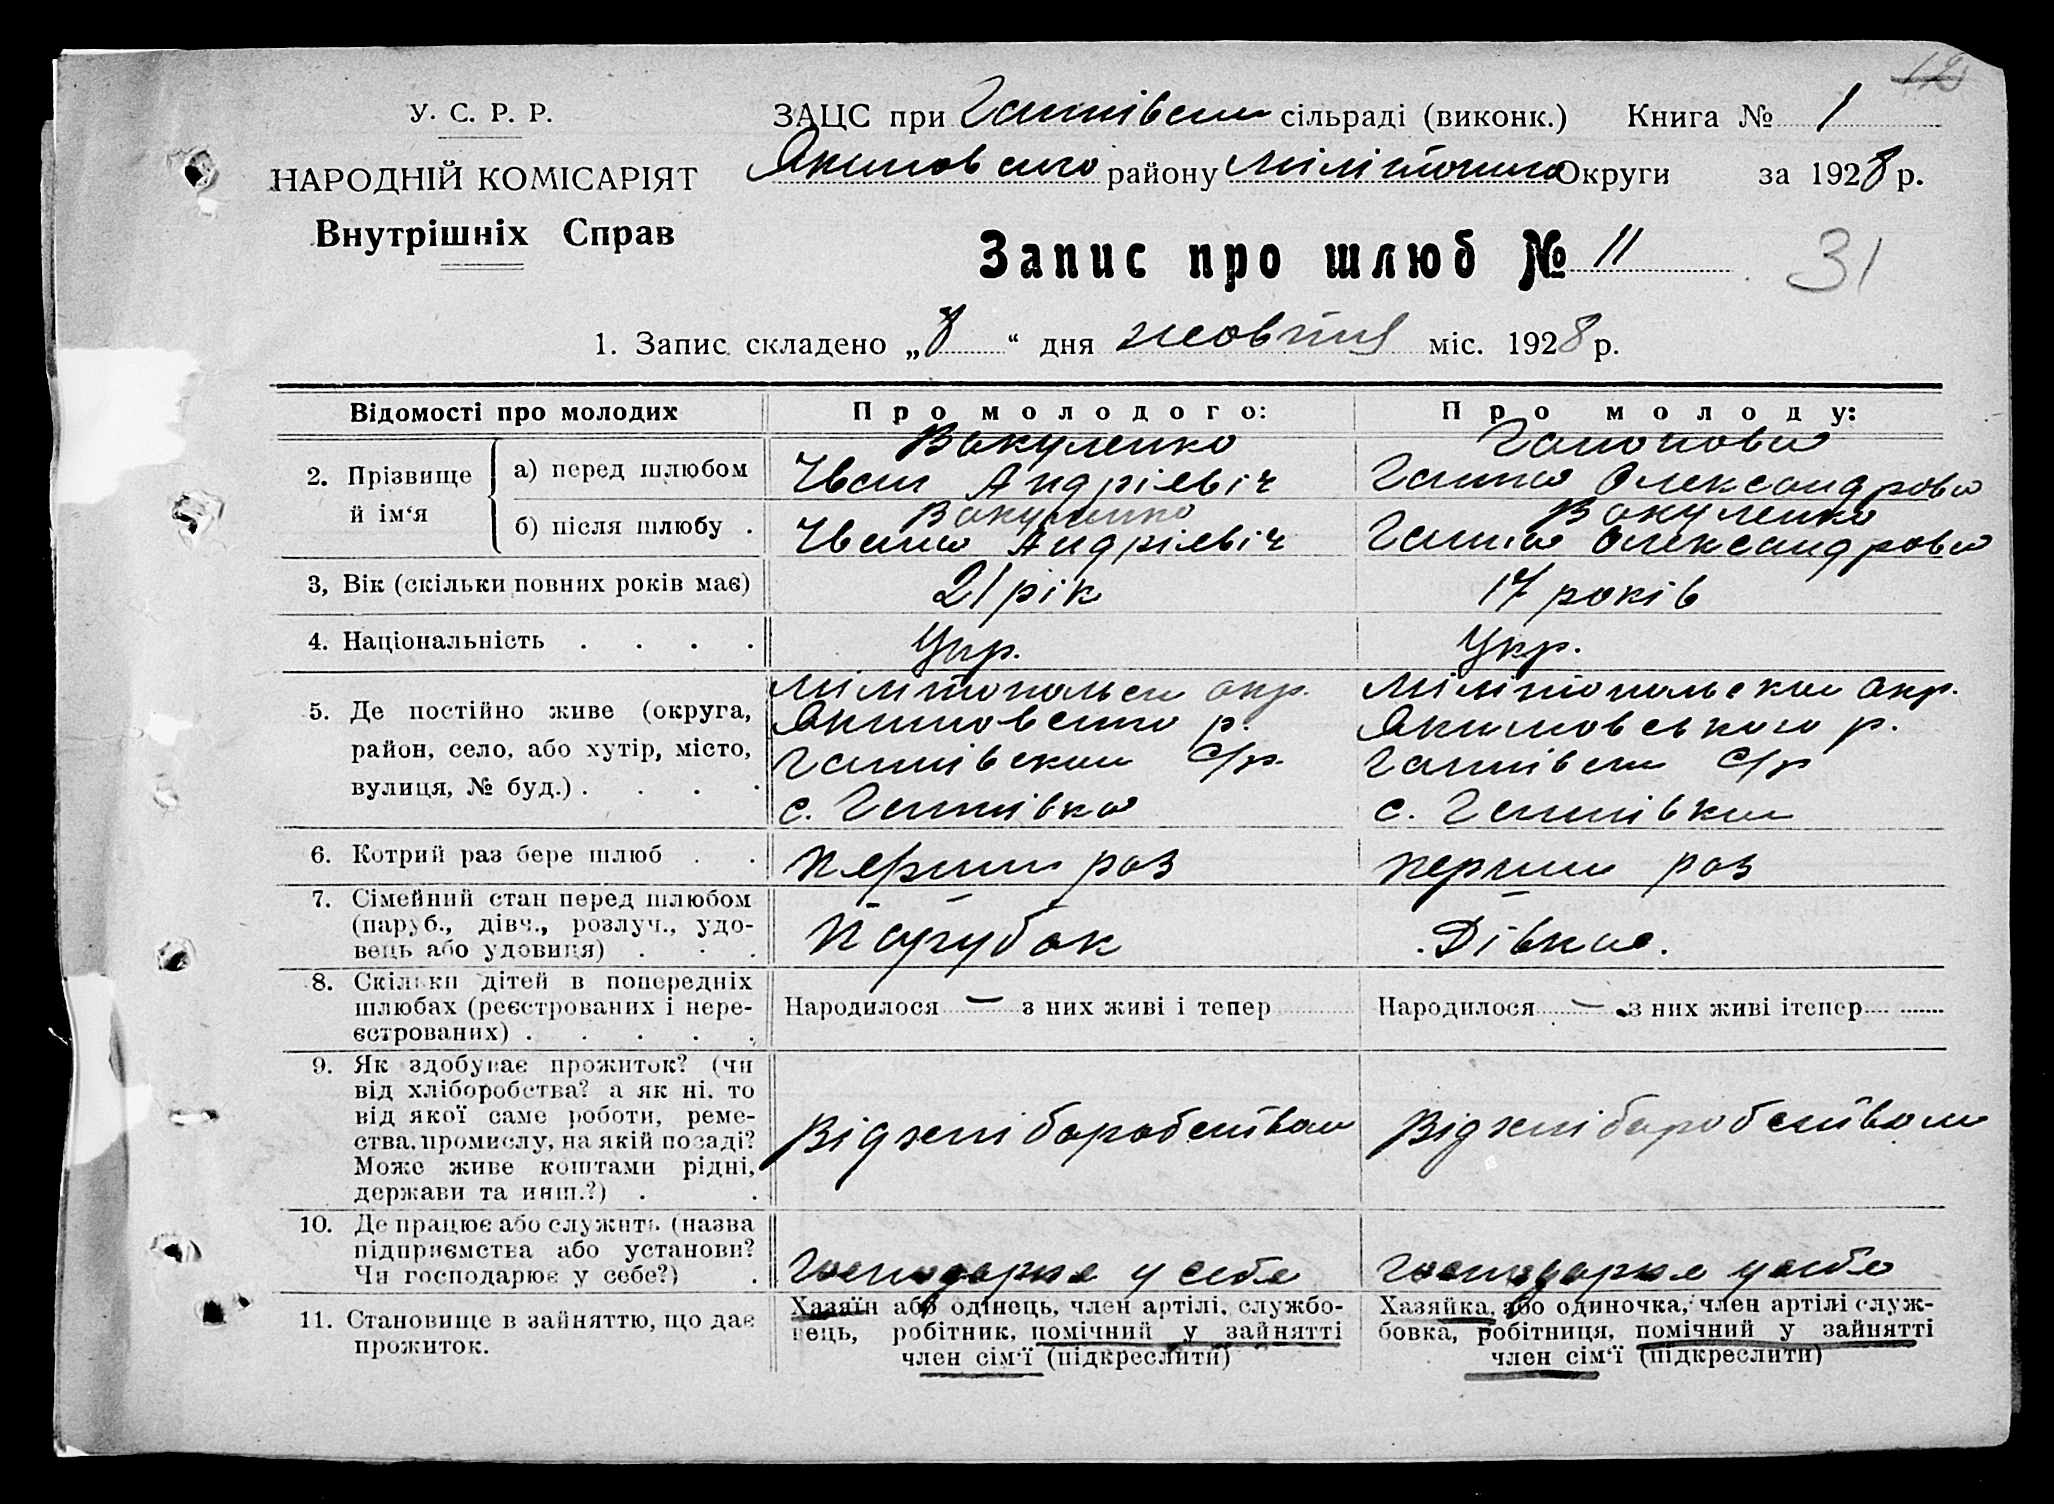 12
У. С. Р. Р.
НАРОДНІЙ КОМІСАРІЯТ
Внутрішніх Справ
ЗАЦС при Ганнівскій сільраді (виконк.) Книга № 1
Якимовского району Мілітопольс Округи за 1928 р.
Запис про шлюб № 11 31
1. Запис складено „8“ дня жовтня міс. 1928 р.
Відомості про молодих
Про молодого:
Про молоду:
2. Прізвище й ім‘я
а) перед шлюбом
Вакуленко
Іван Андрієвіч
Ганна Олександрова
б) після шлюбу .
Вакуленко
Івана Андрієвіч
Вакуленко
Ганна Олександрова
3, Вік (скільки повних років має)
21 рік
17 років
4. Національність . . . .
Укр.
Укр.
5. Де постійно живе (округа,
район, село, або хутір, місто,
вулиця, № буд.) . . . .
Мілітопольськ окр.
Якимовского р.
Ганнівскии С/р.
с. Ганнівка
Мілітопольскии окр.
Якимовського р.
Ганнівски С/р
с. Ганнівки
6. Котрий раз бере шлюб . .
перший раз
перший раз
7. Сімейний стан перед шлюбом
(паруб., дівч., розлуч., удо-
вець або удовиця) . . .
Парубок
Дівка.
8. Скільки дітей в попередніх
шлюбах (реєстрованих і нере-
єстрованих) . . . . .
Народилося — з них живі і тепер
Народилося — з них живі ітепер
9. Як здобуває прожиток? (чи
від хліборобства? а як ні, то
від якої саме роботи, реме-
ства, промислу, на якій посаді?
Може живе коштами рідні,
держави та инш.?) . .
Від хліборобства
Від хліборобства
10. Де працює або служить (назва
підприємства або установи?
Чи господарює у себе?) .
Господарює у себе
Господарює у себе
11. Становище в зайняттю, що дає
прожиток.
Хазяїн або одінець, член артілі, службо-
вець, робітник, помічний у зайнятті
член сім‘ї (підкреслити)
Хазяйка, або одиночка, член артілі служ-
бовка, робітниця, помічний у зайнятті
член сім‘ї (підкреслити)